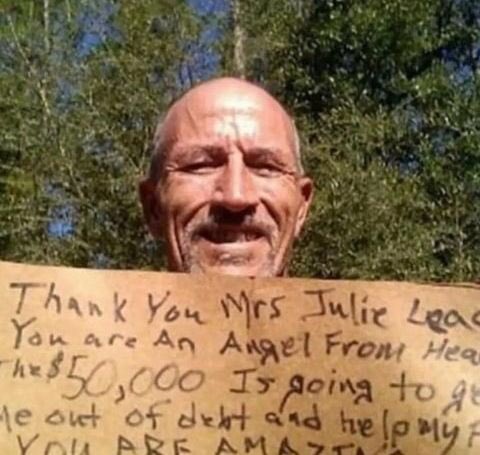 Thank You Mrs Julie Leac
You are An Angel From Hea
The $50,000 Is going to ge
Me out of debt and help my F
YOU ARE AMAZIN